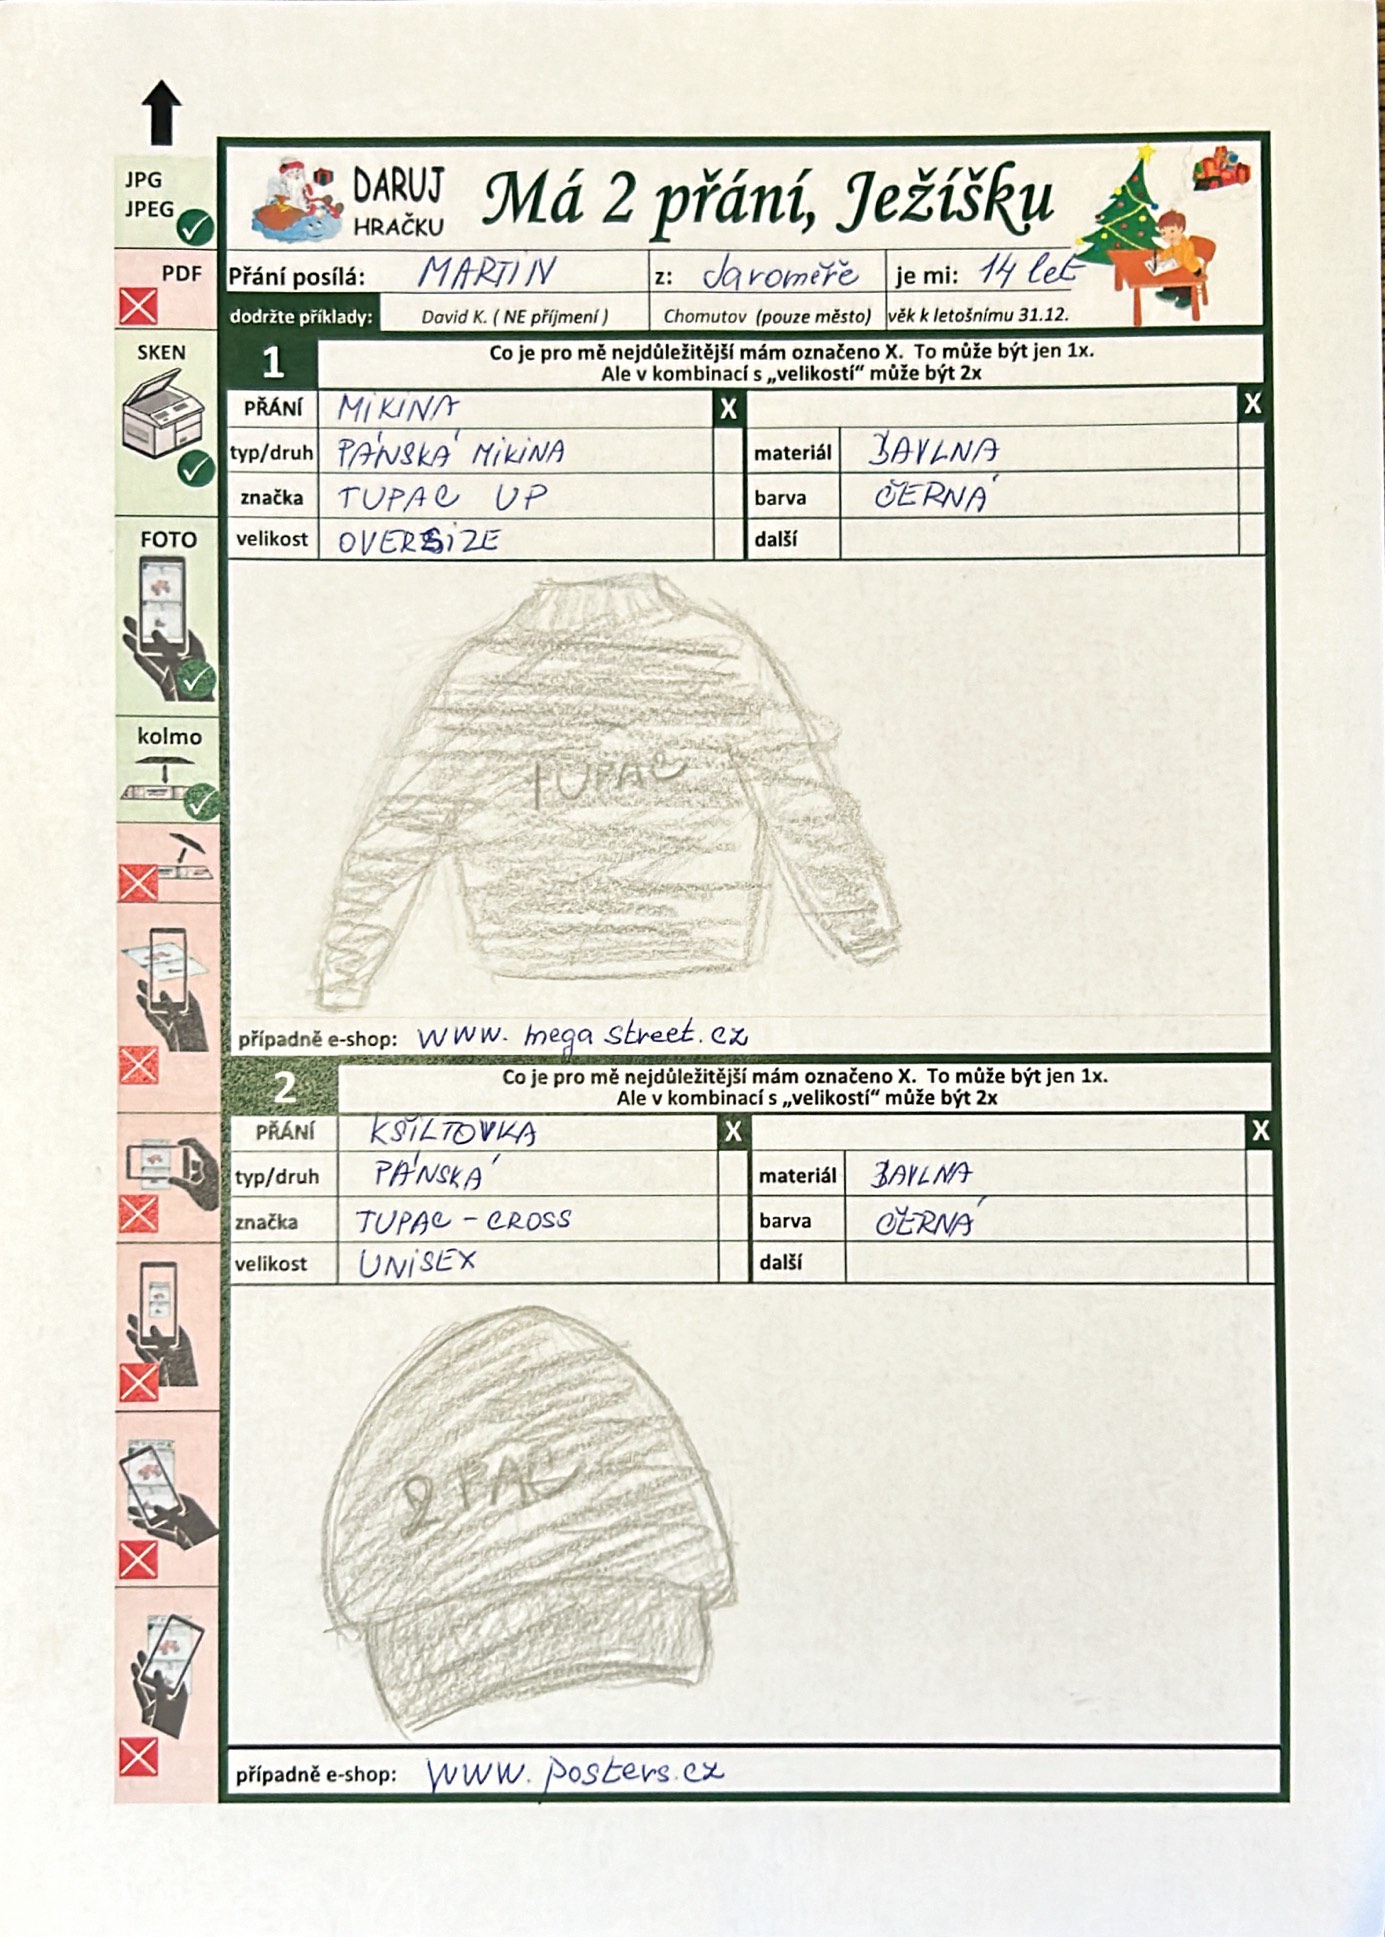 JPG
JPEG
PDF
SKEN
FOTO
kolmo
DARUJ
HRAČKU
Má 2 přání, Ježíšku
Přání posílá: MARTIN z: Jaroměře je mi: 14 let
dodržte příklady: David K. ( NE příjmení ) Chomutov (pouze město) věk k letošnímu 31.12.
1 Co je pro mě nejdůležitější mám označeno X. To může být jen 1x.
Ale v kombinací s „velikostí“ může být 2x
PŘÁNÍ MIKINA X X
typ/druh PÁNSKÁ MIKINA materiál BAVLNA
značka TUPAC UP barva ČERNÁ
velikost OVERSIZE další
TUPAC
případně e-shop: www. mega street. cz
2 Co je pro mě nejdůležitější mám označeno X. To může být jen 1x.
Ale v kombinací s „velikostí“ může být 2x
PŘÁNÍ KŠILTOVKA X X
typ/druh PÁNSKÁ materiál BAVLNA
značka TUPAC - CROSS barva ČERNÁ
velikost UNISEX další
2 PAC
případně e-shop: www. posters. cz